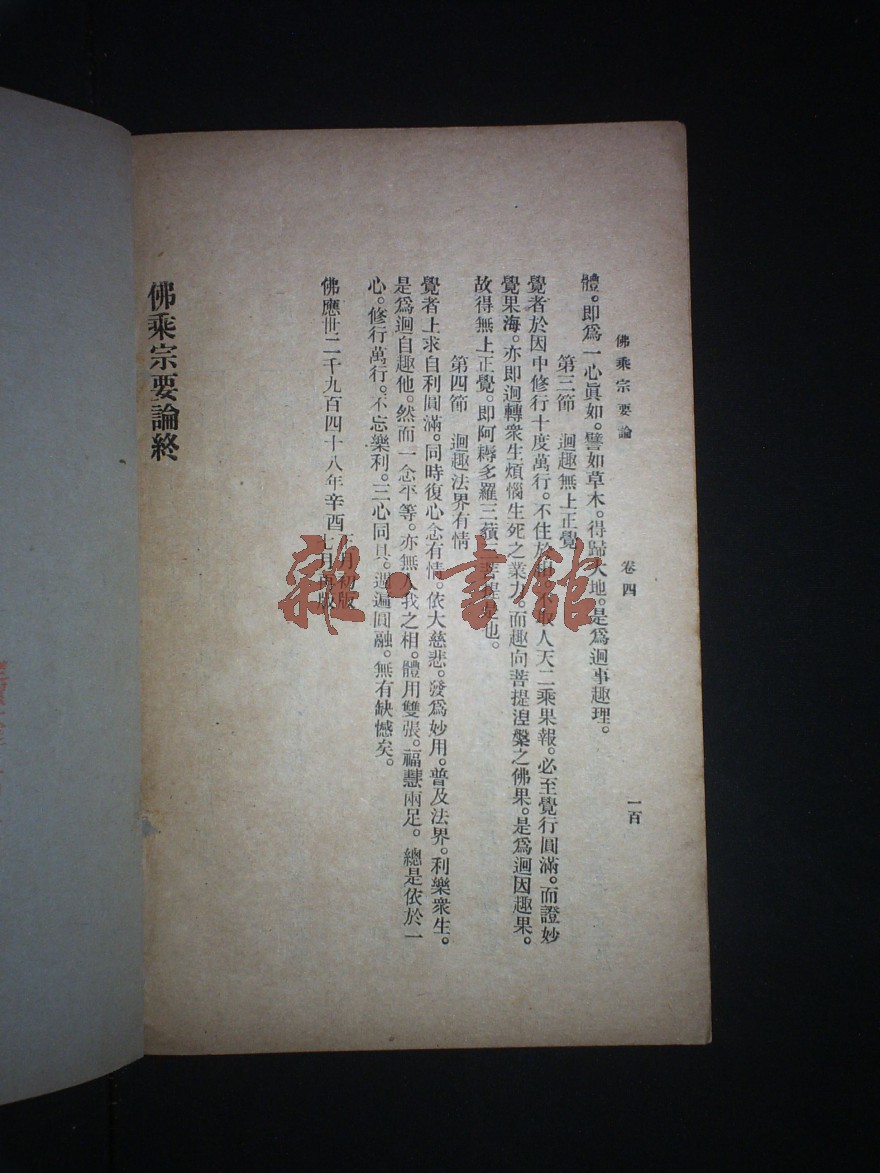 佛乘宗要論　卷四　一百
體。即爲一心眞如。譬如草木。得歸大地。是爲迴事趣理。
第三節　迴趣無上正覺
覺者於因中修行十度萬行。不住於相人天二乘果報。必至覺行圓滿。而證妙
覺果海。亦即迴轉衆生煩惱生死之業力。而趣向菩提湼槃之佛果。是爲迴因趣果。
故得無上正覺。即阿耨多羅三藐三菩提是也。
第四節　迴趣法界有情
覺者上求自利圓滿。同時復心念有情。依大慈悲。發爲妙用。普及法界。利樂衆生。
是爲迴自趣他。然而一念平等。亦無人我之相。體用雙張。福慧兩足。總是依於一
心。修行萬行。不忘樂利。三心同具。週遍圓融。無有缺憾矣。
佛應世二千九百四十八年辛酉
月初版
七月再版
佛乘宗要論終
雜·書館